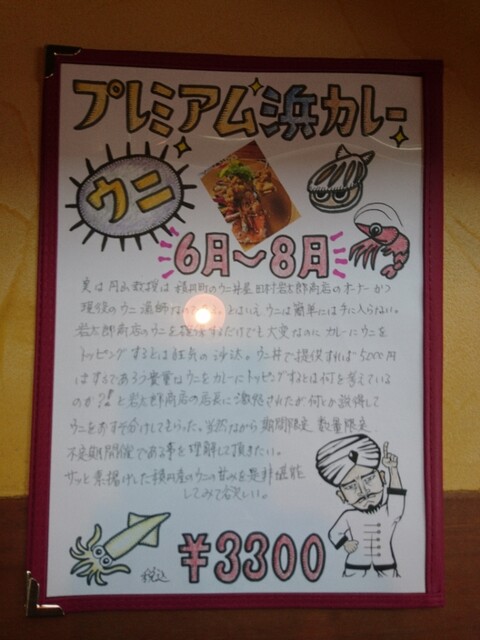 プレミアム浜カレー
ウニ
6月〜8月
実は 教授は 横田町のウニ丼屋 田村岩太郎商店のオーナーかつ
現役のウニ漁師 とはいえ ウニは簡単には手に入らない。
岩太郎商店のウニを するだけでも大変なのに カレーにウニを
トッピングするとは狂気の沙汰。ウニ丼で提供すれば5000円
はするであろう貴重なウニをカレーにトッピングするとは何を考えている
のか?!と岩太郎商店の店長に激怒されたが何とか説得して
ウニをおすそ分けしてもらった。当然ながら 期間限定 数量限定
不定期開催である事を理解して頂きたい。
サッと素揚げした 産のウニの甘みを是非堪能
してみて欲しい。
税込 ¥3300